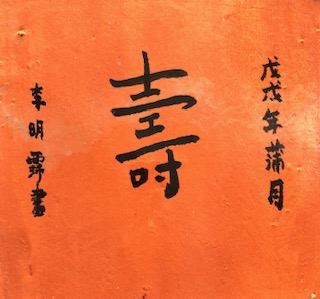 戊戌年蒲月
壽
李明書